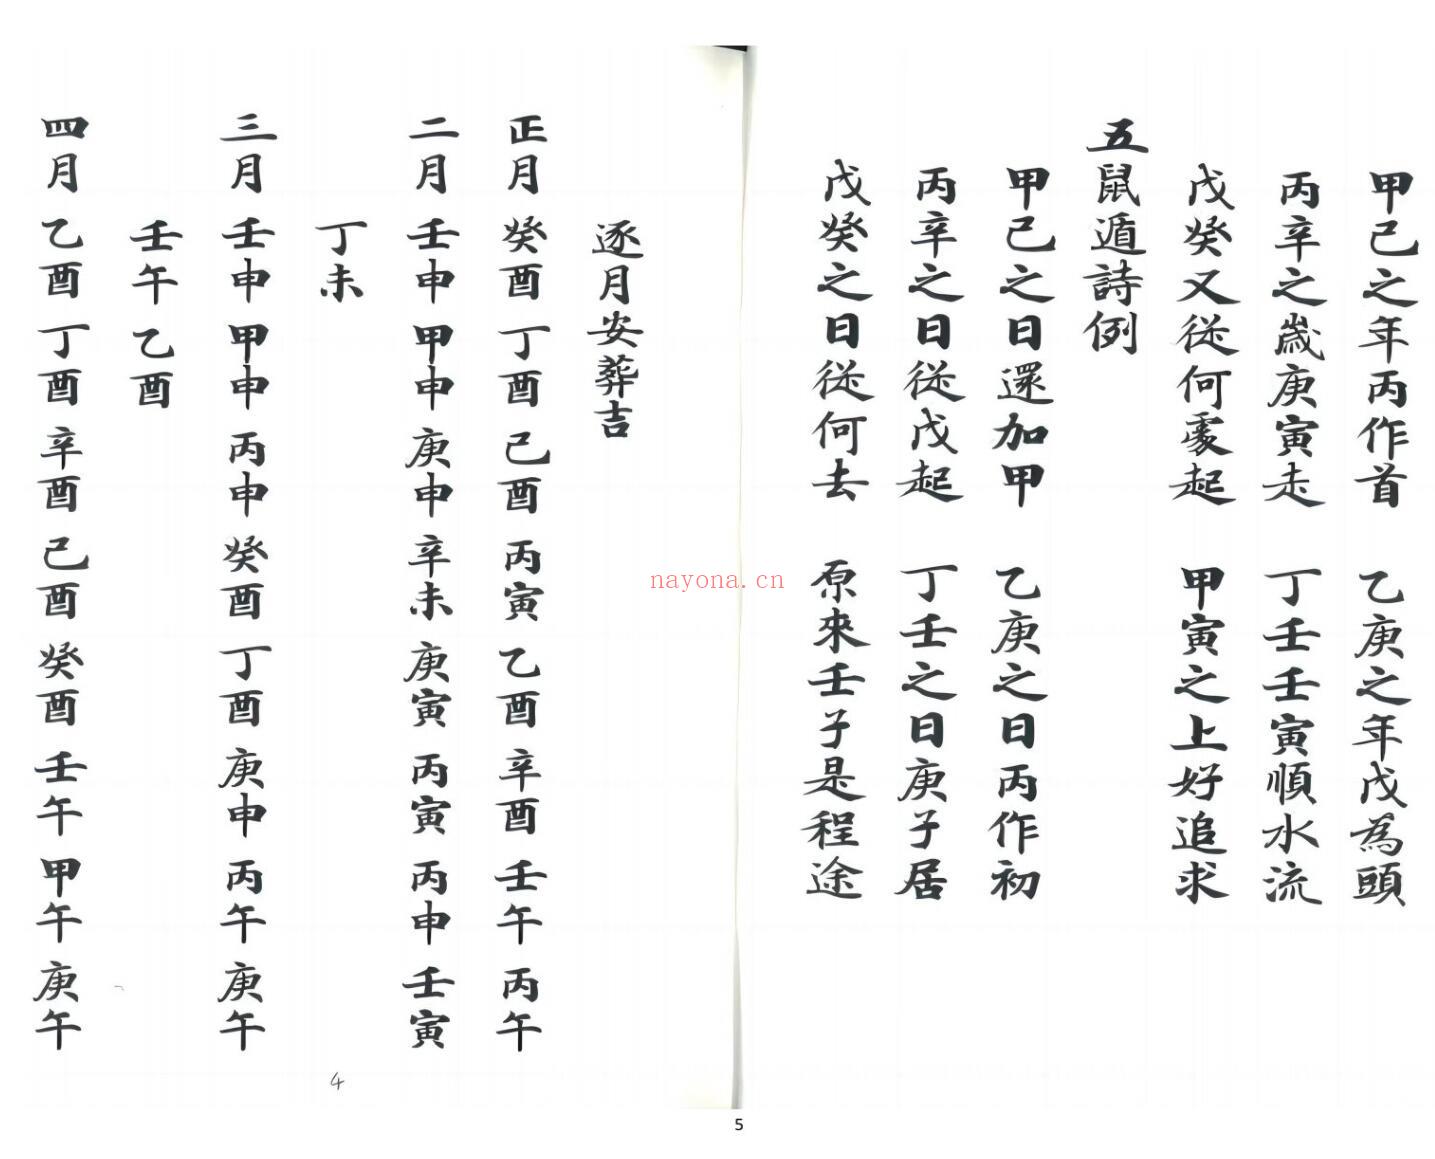 甲己之年丙作首 乙庚之年戊為頭
丙辛之歲庚寅走 丁壬壬寅順水流
戊癸又從何處起 甲寅之上好追求
五鼠遁詩例
甲己之日還加甲 乙庚之日丙作初
丙辛之日從戊起 丁壬之日庚子居
戊癸之日從何去 原來壬子是程途
逐月安葬吉
正月 癸酉 丁酉 己酉 丙寅 乙酉 辛酉 壬午 丙午
二月 壬申 甲申 庚申 辛未 庚寅 丙寅 丙申 壬寅
丁未
三月 壬申 甲申 丙申 癸酉 丁酉 庚申 丙午 庚午
壬午 乙酉
四月 乙酉 丁酉 辛酉 己酉 癸酉 壬午 甲午 庚午
4
5
nayona.cn